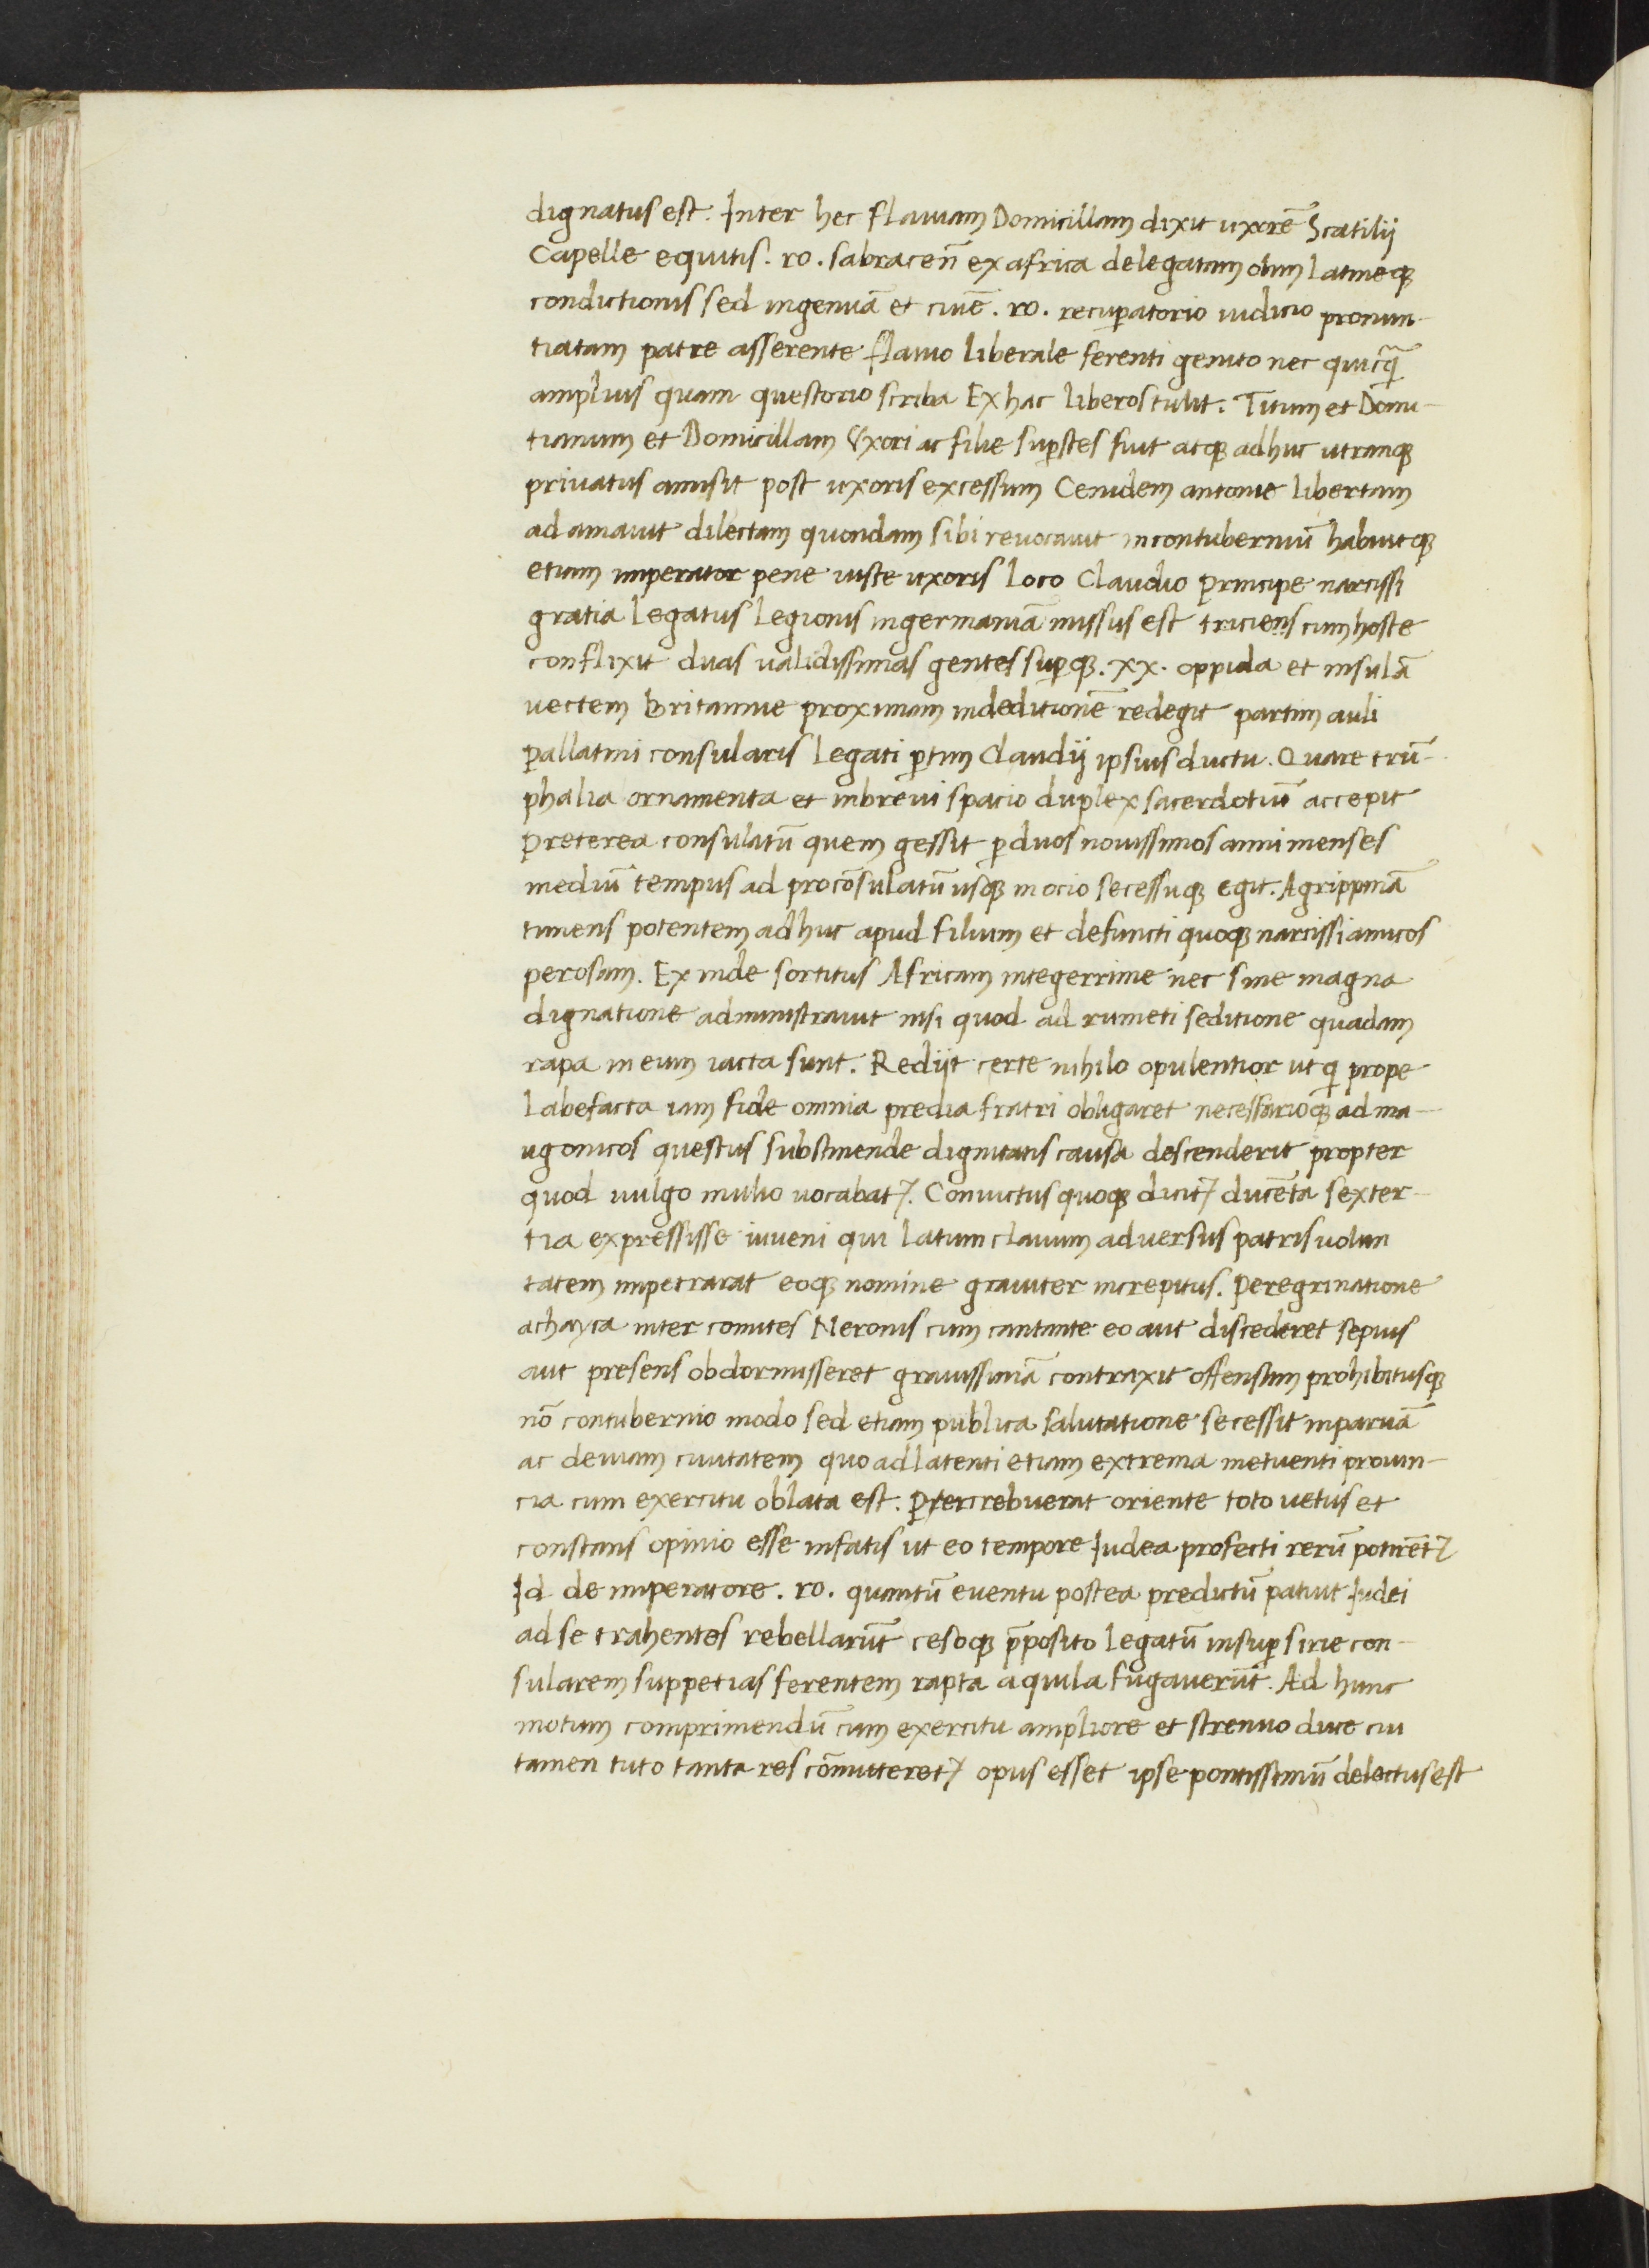 dignatus est. Inter hec flauiam Domicillam dixit uxorē Scatilij
Capelle equitis. ro. sabracen̄ ex africa delegatam olim latineqꝫ
condictionis sed ingenuā et ciuē. ro. recuꝑatorio iudicio pronun-
tiatam patre asserente flauio liberale ferenti genito nec quicq̄
amplius quam questorio scriba Ex hac liberos tulit. Titum et Domi-
tianum et Domicillam Uxori ac filie suꝑstes fuit atqꝫ adhuc utranqꝫ
priuatus amisit post uxoris excessum Cenidem antonie libertam
ad amauit dilectam quondam sibi reuocauit in contuberniū habuitqꝫ
etiam imperator pene iuste uxoris loco Claudio principe narcissi
gratia legatus legionis in germaniā missus est triciens cum hoste
conflixit duas ualidissimas gentes suꝑqꝫ. xx. oppida et insulā
uectem Britannie proximam in deditionē redegit partim auli
pallatini consularis legati ꝑtim Claudij ipsius ductu. Quare triū-
phalia ornamenta et in breui spacio duplex sacerdotiū accepit
preterea consulatū quem gessit ꝑ duos nouissimos anni menses
mediū tempus ad procōsulatū usqꝫ in ocio secessuqꝫ egit. Agrippinā
timens potentem adhuc apud filium et defuncti quoqꝫ narcissi amicos
perosam. Ex inde sortitus Africam integerrime nec sine magna
dignatione administrauit nisi quod ad rumeti seditione quadam
rapa in eum iacta sunt. Redijt certe nihilo opulentior ut q̇ prope
labefacta iam fide omnia predia fratri obligaret necessarioqꝫ ad ma-
ugonicos questus substinende dignitatis causa descenderit propter
quod uulgo mulio uocabat᷑. Conuictus quoqꝫ dicit᷑ ducēta sexter-
tia expressisse iuueni qui latum clauum aduersus patris uolun
tatem impetrarat eoqꝫ nomine grauiter increpitus. Peregrinatione
achayca inter comites Neronis cum cantante eo aut discederet sepius
aut presens obdormisseret grauissimā contraxit offensam prohibitusqꝫ
nō contubernio modo sed etiam publica salutatione secessit in paruā
ac deuiam ciuitatem quo ad latenti etiam extrema metuenti prouin-
cia cum exercitu oblata est. Ꝑtercrebuerat oriente toto uetus et
constans opinio esse in fatis ut eo tempore Iudea profecti rerū potirēt᷑
Id de imperatore. ro. quantū euentu postea predictū patuit Iudei
ad se trahentes rebellarūt cesoqꝫ p̄posito legatū insuꝑ sirie con-
sularem suppetias ferentem rapta aquila fugauerūt. Ad hunc
motum comprimendū cum exercitu ampliore et strenuo duce cui
tamen tuto tanta res cōmitteret᷑ opus esset ipse pontissimū delectus est